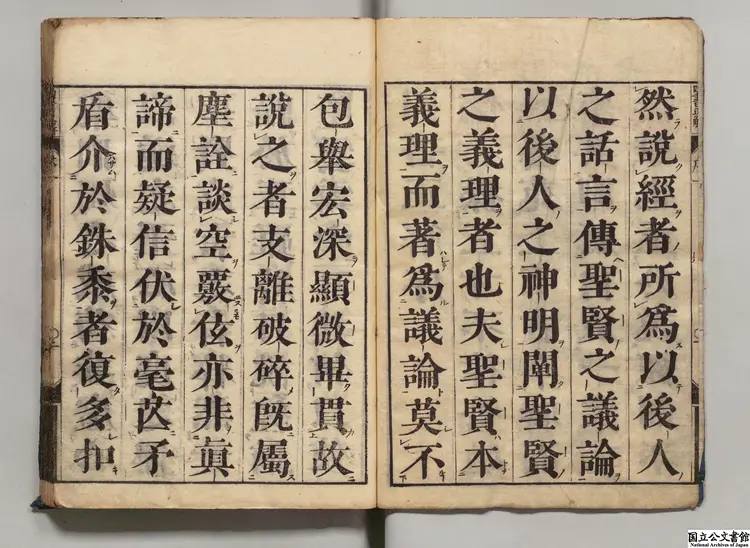 然說經者所爲以後人
之話言傳聖賢之議論
以後人之神明闡聖賢
之義理者也夫聖賢本
義理而著爲議論莫不
包舉宏深顯微畢貫故
說之者支離破碎旣屬
塵詮談空覈伭亦非眞
諦而疑信伏於毫芒矛
盾介於銖黍者復多扣
国立公文書館
National Archives of Japan